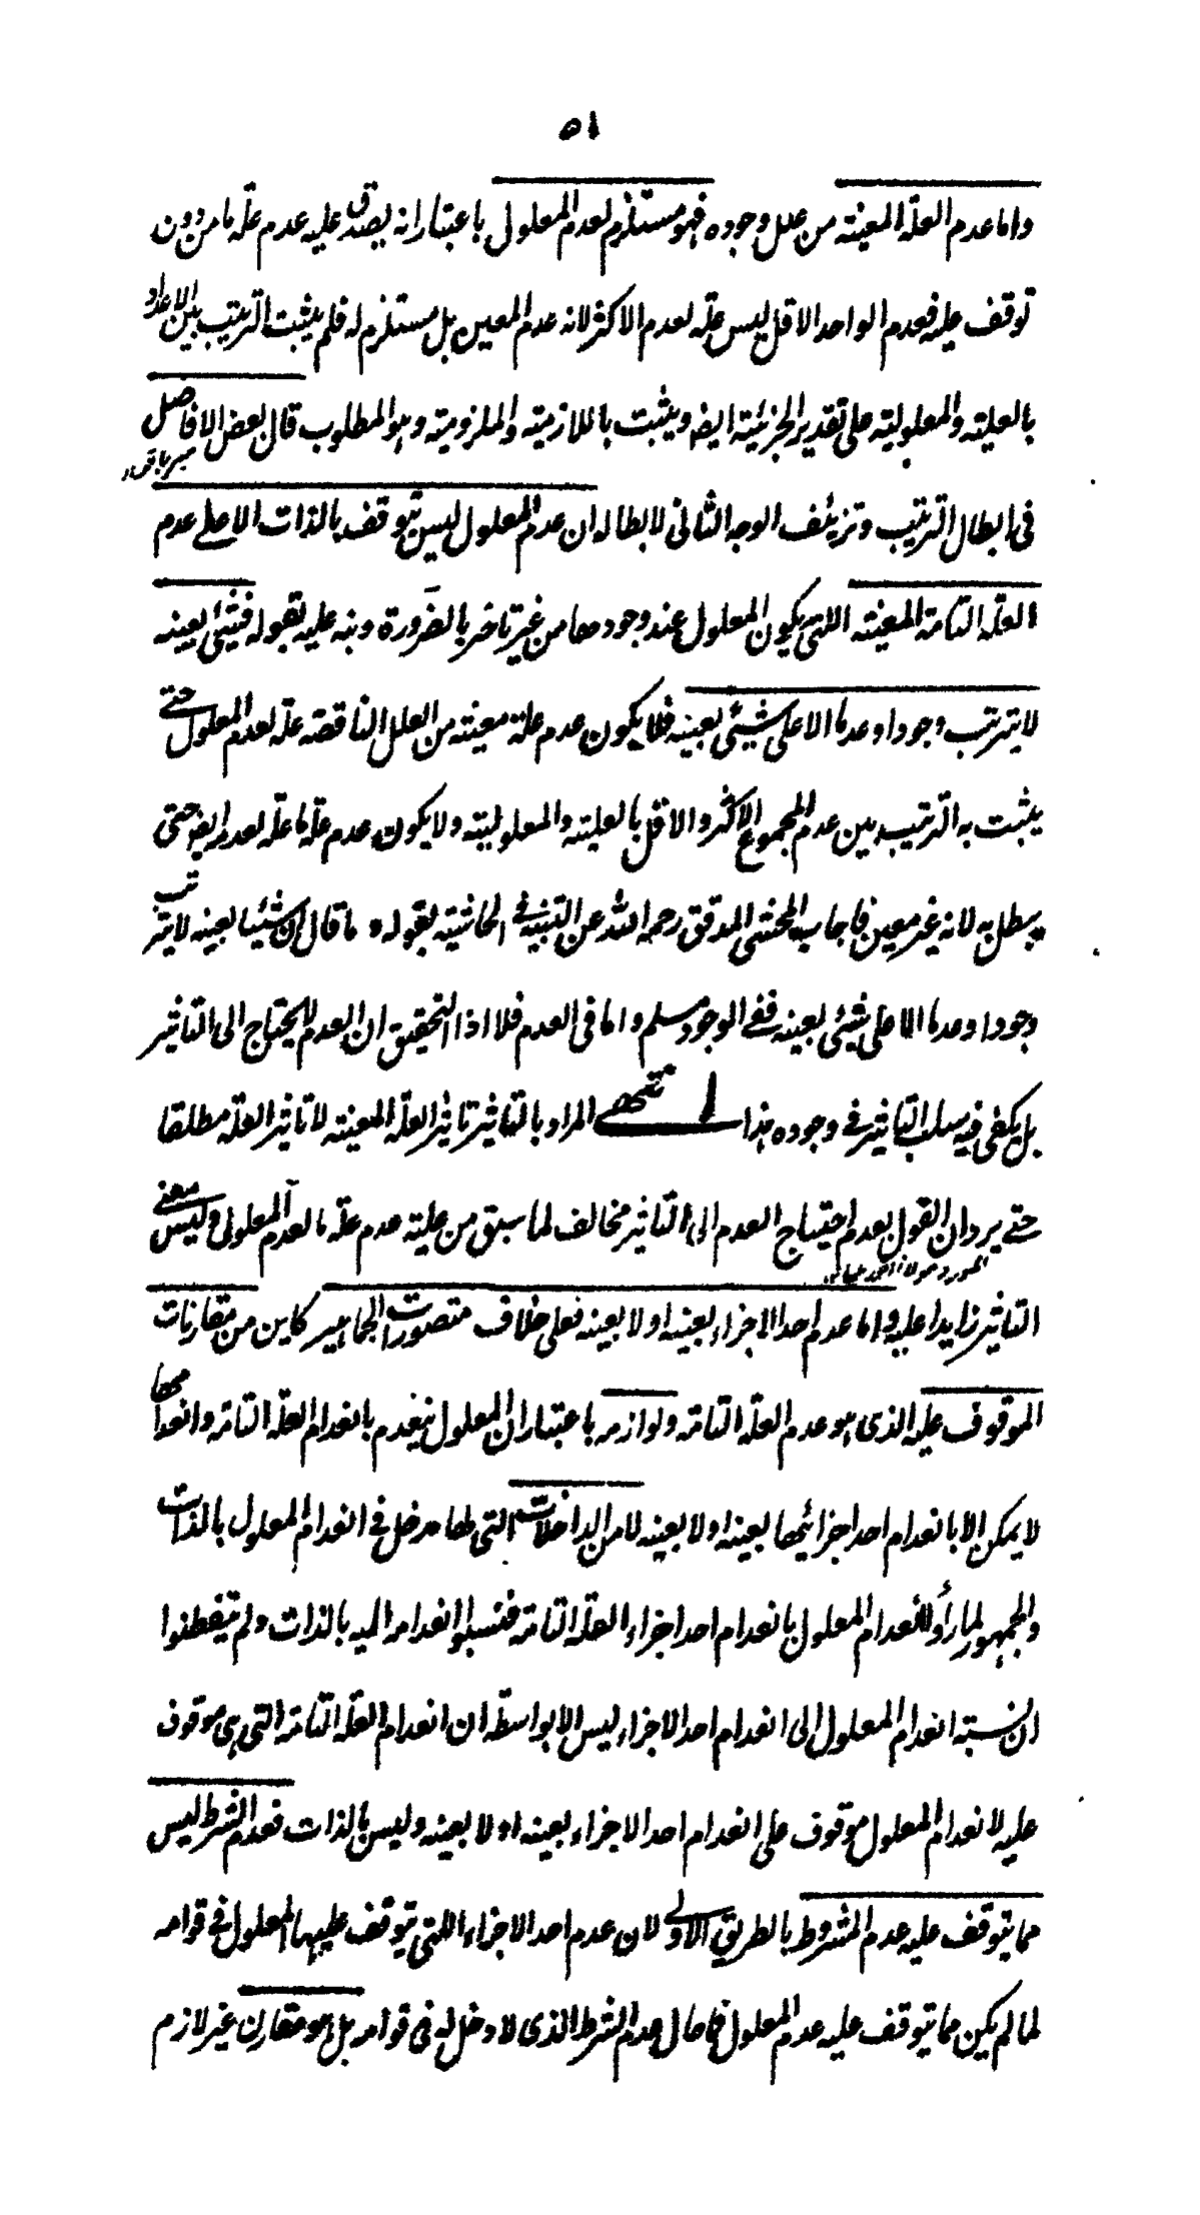 ٥١
واما عدم العلة المعينة من علل وجوده فهو مستلزم لعدم المعلول باعتبار انه يصدق عليه عدم علة ما من دون
توقف عليه فعدم الواحد الاقل ليس علة لعدم الاكثر لانه عدم المعين بل مستلزم له فلم يثبت الترتيب بين الاعداد
بالعلية والمعلولية على تقدير الجزئية ايضا ويثبت باللازمية والملزومية وهو المطلوب قال بعض الافاضل
مير باقر
فى ابطال الترتيب وتزئيف الوجه الثانى لابطاله ان عدم المعلول ليس يتوقف بالذات الا على عدم
العلة التامة المعينة اللتى يكون المعلول عند وجودها من غير تاخر بالضرورة ونبه عليه بقوله فشئ بعينه
لا يترتب وجودا وعدما الا على شيئ بعينه فلا يكون عدم علة معينة من العلل الناقصة علة لعدم المعلول حتے
يثبت به الترتيب بين عدم المجموع الاكثر والاقل بالعلية والمعلولية ولا يكون عدم علة ما علة لعدم ايضا حتى
يبطل به لانه غير معين فاجاب المحشى المدقق رحمه الله عن التنبيه فى الحاشية بقوله وما قال ان شيئا بعينه لا يترتب
وجودا وعدما الا على شيئ بعينه ففے الوجود مسلم واما فى العدم فلا اذ التحقيق ان العدم لا يحتاج الى التاثير
بل يكفى فيه سلب التاثير فے وجوده هذا انتهے المراد بالتاثير تاثير العلة المعينة لا تاثير العلة مطلقا
حتے يرد ان القول بعدم احتياج العدم الى التاثير مخالف لما سبق من علية عدم علة ما لعدم المعلول وليس معنے
المورد مولانا
التاثير زايدا عليه واما عدم احد الاجزاء بعينه او لا بعينه فعلى خلاف متصورات الجماهير كاين من مقارنات
الموقوف عليه الذى هو عدم العلة التامة ولوازمه باعتبار ان المعلول ينعدم بانعدام العلة التامة وانعدامها
لا يمكن الا بانعدام احد اجزائيها بعينه او لا بعينه لا من الداخلات التى لها مدخل فے انعدام المعلول بالذات
والجمهور لما رأوا انعدام المعلول بانعدام احد اجزاء العلة التامة فنسبوا انعدامه اليه بالذات ولم يتفطنوا
ان نسبة انعدام المعلول الى انعدام احد الاجزاء ليس الا بواسطة ان انعدام العلة التامة التى هى موقوف
عليه لانعدام المعلول موقوف على انعدام احد الاجزاء بعينه او لا بعينه وليس بالذات فعدم الشرط ليس
مما يتوقف عليه عدم المشروط بالطريق الاولے لان عدم احد الاجزاء اللتى يتوقف عليها المعلول فے قوامه
لما لم يكن مما يتوقف عليه عدم المعلول فما حال عدم الشرط الذى لا دخل له فى قوامه بل هو مقارن غير لازم